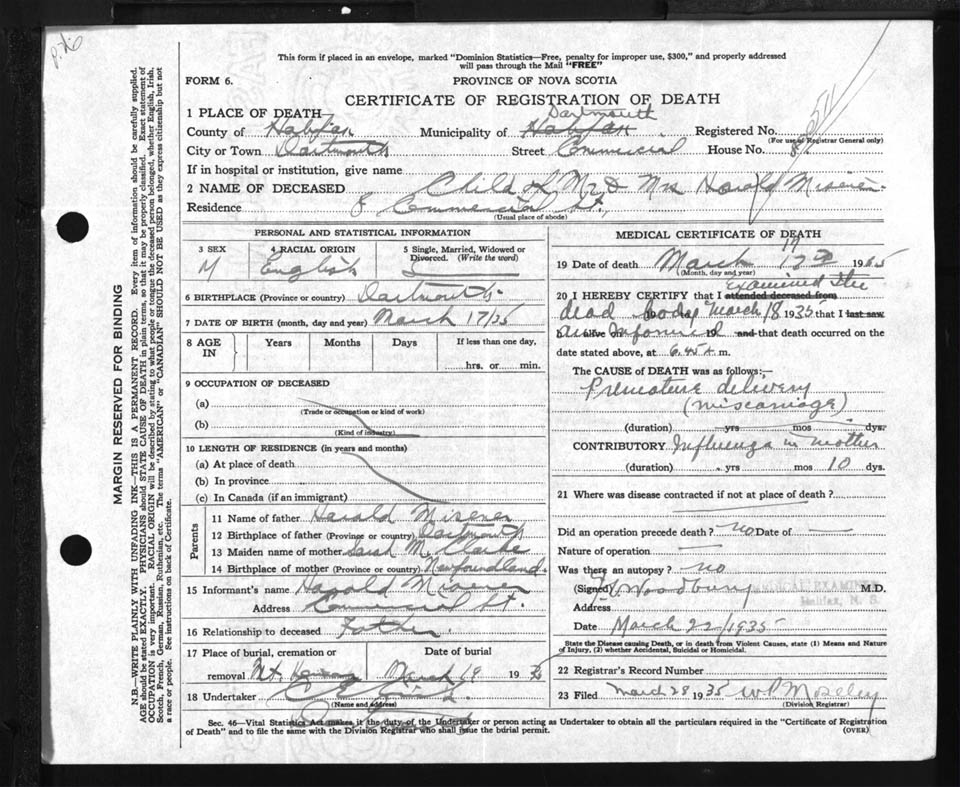 This form if placed in an envelope, marked "Dominion Statistics—Free, penalty for improper use, $300," and properly addressed
will pass through the Mail "FREE"
FORM 6.
PROVINCE OF NOVA SCOTIA
CERTIFICATE OF REGISTRATION OF DEATH
1 PLACE OF DEATH
Dartmouth
County of Halifax Municipality of Halifax Registered No.
(For use of Registrar General only)
City or Town Dartmouth Street Commercial House No.
If in hospital or institution, give name
2 NAME OF DECEASED Child of Mr & Mrs Harold Misener
Residence 8 Commercial St,
(Usual place of abode)
PERSONAL AND STATISTICAL INFORMATION
3 SEX 4 RACIAL ORIGIN 5 Single, Married, Widowed or
Divorced. (Write the word)
M English S
6 BIRTHPLACE (Province or country) Dartmouth
7 DATE OF BIRTH (month, day and year) March 17/35
8 AGE IN Years Months Days If less than one day,
hrs. or min.
9 OCCUPATION OF DECEASED
(a)
(Trade or occupation or kind of work)
(b)
(Kind of industry)
10 LENGTH OF RESIDENCE (in years and months)
(a) At place of death
(b) In province
(c) In Canada (if an immigrant)
Parents
11 Name of father Harald Misener
12 Birthplace of father (Province or country) Dartmouth
13 Maiden name of mother Sarah M. Clarke
14 Birthplace of mother (Province or country) Newfoundland
15 Informant's name Harald Misener
Address Commercial St.
16 Relationship to deceased Father
17 Place of burial, cremation or Date of burial
removal Mt. Hermon March 19 193
18 Undertaker
(Name and address)
MEDICAL CERTIFICATE OF DEATH
19 Date of death March 17 1935
(Month, day and year)
examined the
20 I HEREBY CERTIFY that I attended deceased from
dead body March 18 1935 that I last saw
and that death occurred on
date stated above, at 6.45 A. m.
The CAUSE of DEATH was as follows:—
Premature delivery
(miscarriage)
(duration) yrs mos dys.
CONTRIBUTORY Influenza in mother
(duration) yrs mos 10 dys.
21 Where was disease contracted if not at place of death?
Did an operation precede death? no Date of
Nature of operation
Was there an autopsy? no
(Signed) Woodbury M.D.
MEDICAL EXAMINER
Halifax, N. S.
Address
Date March 22/1935
State the Disease causing Death, or in death from Violent Causes, state (1) Means and Nature
of Injury, (2) whether Accidental, Suicidal or Homicidal.
22 Registrar's Record Number
23 Filed March 28 1935 W P Moseley
(Division Registrar)
Sec. 46—Vital Statistics Act makes it the duty of the Undertaker or person acting as Undertaker to obtain all the particulars required in the "Certificate of Registration
of Death" and to file the same with the Division Registrar who shall issue the burial permit. (OVER)
MARGIN RESERVED FOR BINDING
N.B.—WRITE PLAINLY WITH UNFADING INK—THIS IS A PERMANENT RECORD. Every item of information should be carefully supplied.
AGE should be stated EXACTLY. PHYSICIANS should STATE CAUSE OF DEATH in plain terms, so that it may be properly classified. Exact statement of
OCCUPATION is very important. RACIAL ORIGIN will be described by stating to what people or tongue the deceased person belonged, whether English, Irish,
Scotch, French, German, Russian, Ruthenian, etc. The terms "AMERICAN" or "CANADIAN" SHOULD NOT BE USED as they express citizenship but not
a race or people. See instructions on back of Certificate.